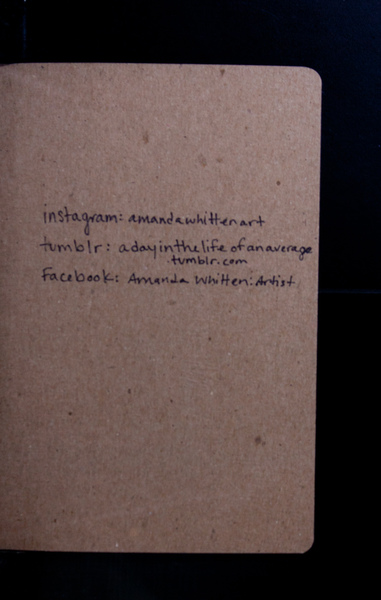 instagram: amandawhittenart
tumblr: adayinthelifeofanaverage
tumblr.com
Facebook: Amanda Whitten: Artist